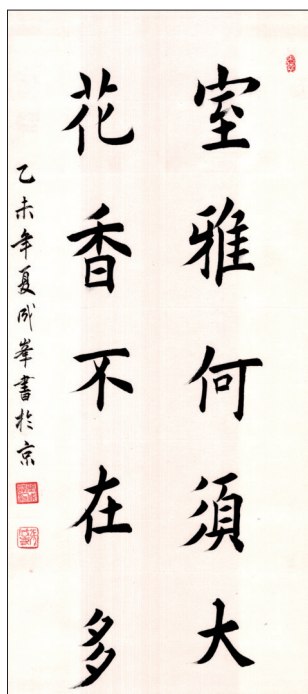 室雅何須大
花香不在多
乙未年夏成峯書於京